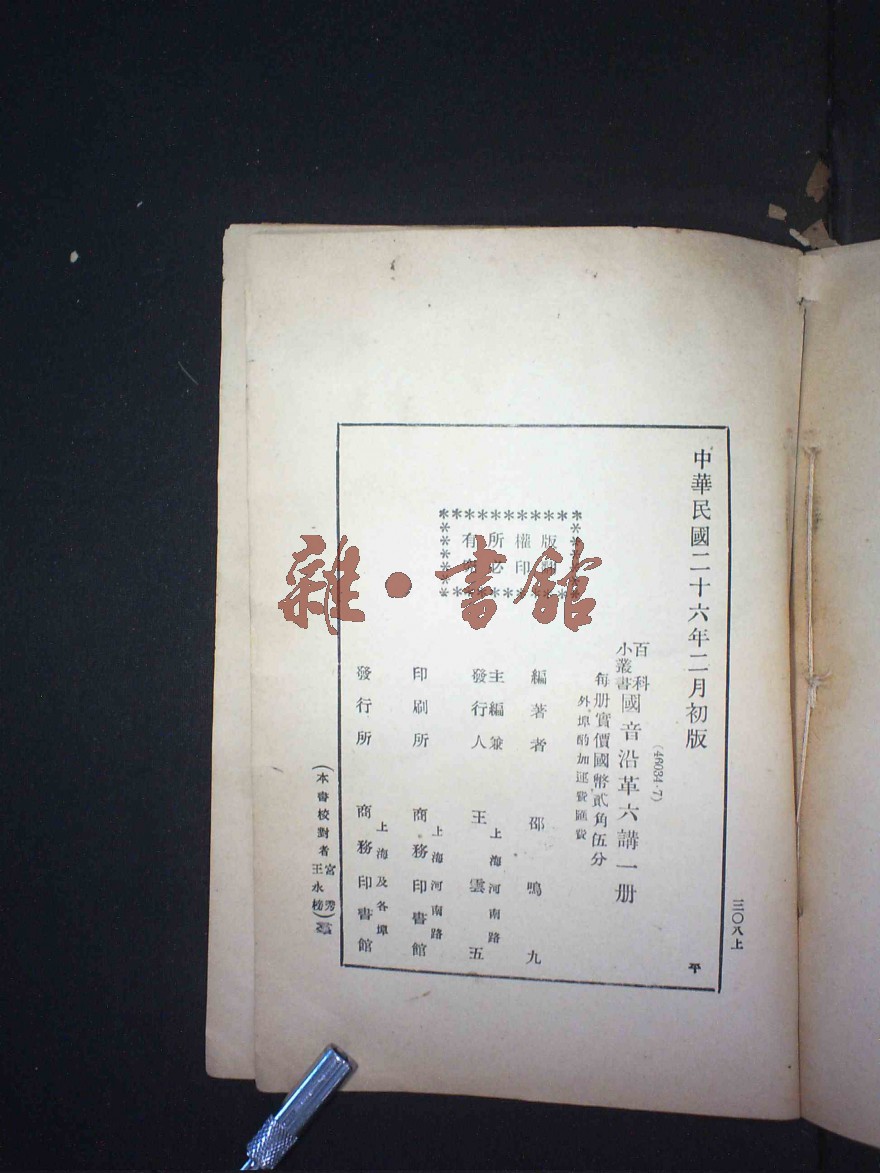 中華民國二十六年二月初版
三〇八上
平
(46034·7)
百科
小叢書
國音沿革六講一册
每册實價國幣貳角伍分
外埠酌加運費匯費
版權所有
印必
編著者 邵鳴九
上海河南路
主編兼
發行人 王雲五
上海河南路
印刷所 商務印書館
上海及各埠
發行所 商務印書館
(本書校對者 宮秀
王永榜)
雜·書館